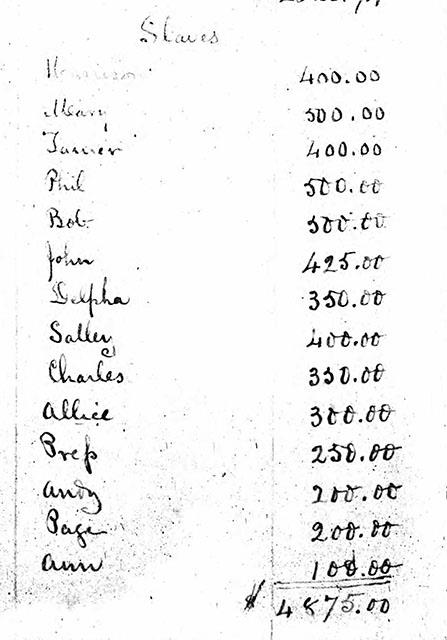 Slaves
400.00
Mary 500.00
400.00
Phil 500.00
Bob 500.00
John 425.00
Delpha 350.00
Salley 400.00
Charles 350.00
Allice 300.00
Preſs 250.00
Andy 200.00
Page 200.00
Ann 100.00
$ 4875.00